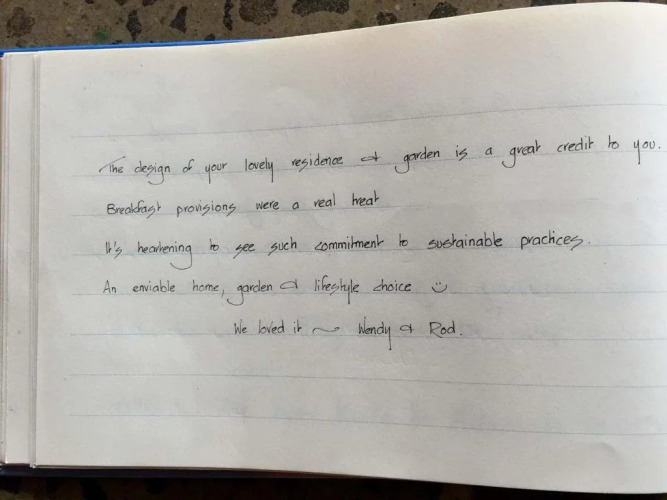 The design of your lovely residence & garden is a great credit to you.
Breakfast provisions were a real treat
It's heartening to see such commitment to sustainable practices.
An enviable home, garden & lifestyle choice ☺
We loved it ~ Wendy & Rod.